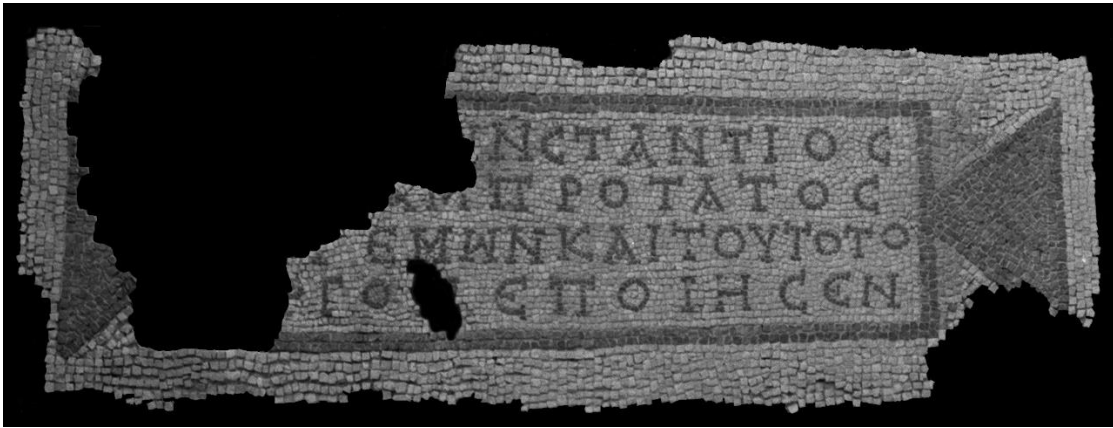 ΝϹΤΑΝΤΙΟϹ
ΜΠΡΟΤΑΤΟϹ
ΕΜΩΝΚΑΙΤΟΥΤΟΤΟ
ΓΟ ΕΠΟΙΗϹΕΝ